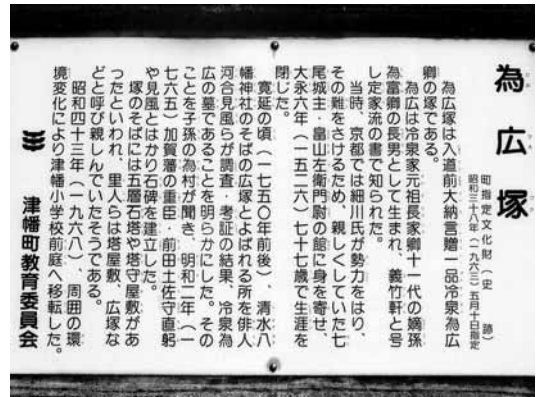 為広塚
町指定文化財(史 跡)
昭和三十八年(一九六三)五月十日指定
為広塚は入道前大納言贈一品冷泉為広
卿の塚である。
為広は冷泉家元祖長家卿十一代の嫡孫
為富卿の長男として生まれ、義竹軒と号
し定家流の書で知られた。
当時、京都では細川氏が勢力をはり、
その難をさけるため、親しくしていた七
尾城主・畠山左衛門尉の館に身を寄せ、
大永六年(一五二六)七十七歳で生涯を
閉じた。
寛延の頃(一七五〇年前後)、清水八
幡神社のそばの広塚とよばれる所を俳人
河合見風らが調査・考証の結果、冷泉為
広の墓であることを明らかにした。その
ことを子孫の為村が聞き、明和二年(一
七六五)加賀藩の重臣・前田土佐守直躬
や見風とはかり石碑を建立した。
塚のそばには五層石塔や塔守屋敷があ
ったといわれ、里人らは塔屋敷、広塚な
どと呼び親しんでいたそうである。
昭和四十三年(一九六八)、周囲の環
境変化により津幡小学校前庭へ移転した。
津幡町教育委員会